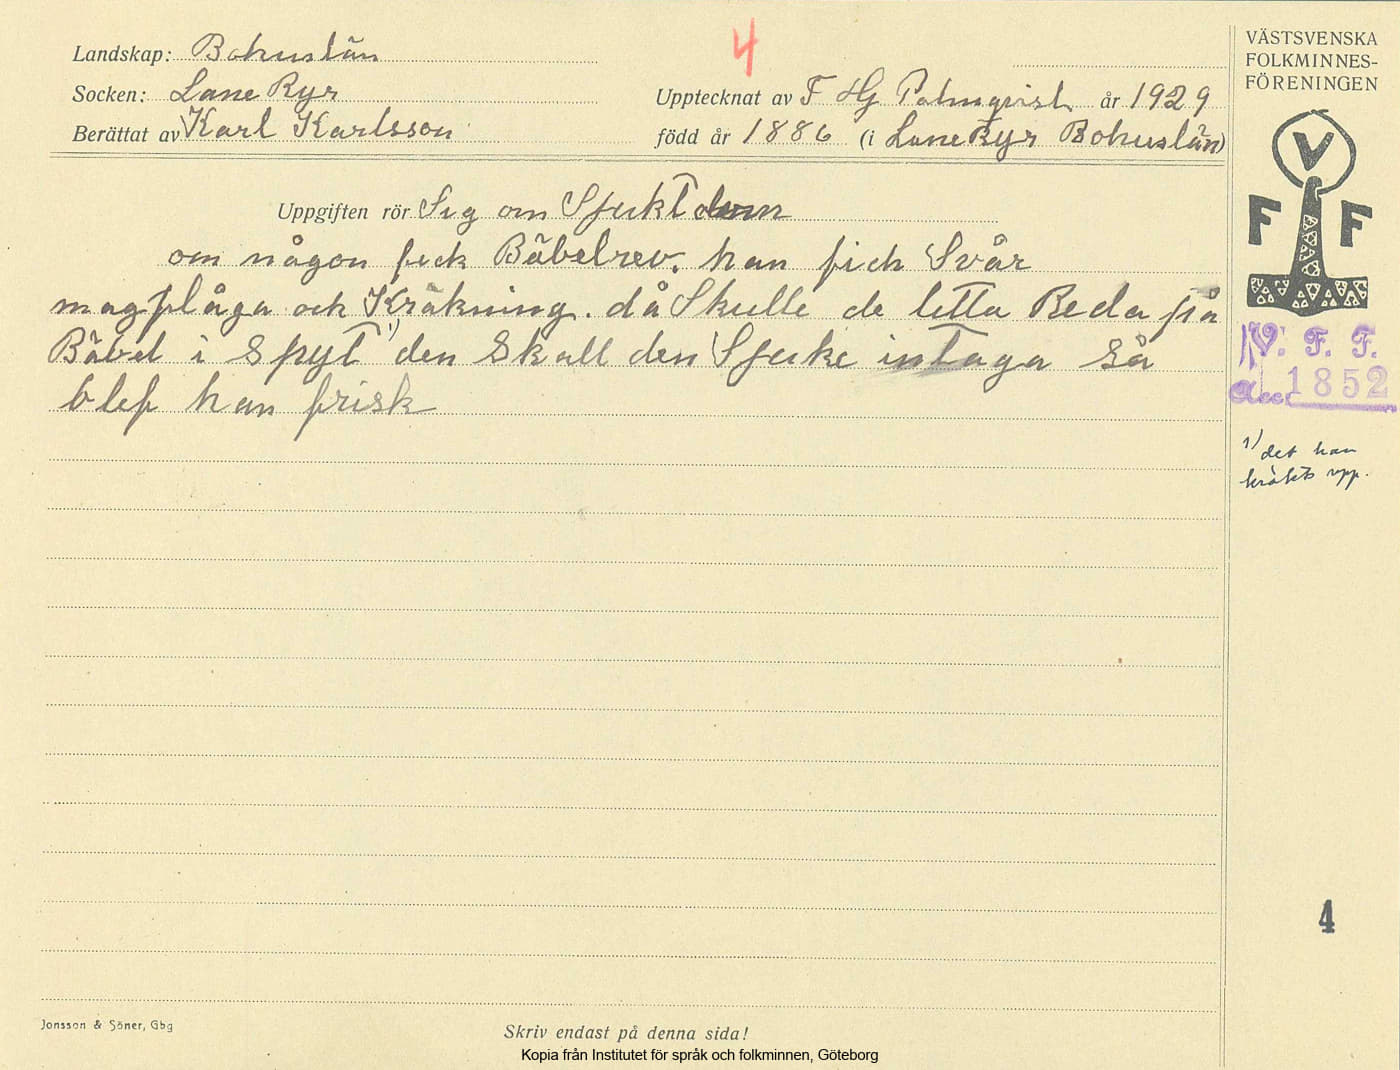 4
Landskap: Bohuslän
Socken: Lane Ryr
Upptecknat av F Hj Palmqvist år 1929
Berättat av Karl Karlsson
född år 1886 (i Lane Ryr Bohuslän)
VÄSTSVENSKA
FOLKMINNES-
FÖRENINGEN
V
F F
Uppgiften rör Sig om Sjukt
om någon fick Bäbelrev. han fick Svår
magplåga och Kräkning. då Skulle de letta Reda på
Bäbel i Spyt 1) den Skall den Sjuke intaga Så
blef han frisk
V. F. F.
Acc. 1852
1) det han
kräkts upp.
4
Jonsson & Söner, Gbg
Skriv endast på denna sida!
Kopia från Institutet för språk och folkminnen, Göteborg